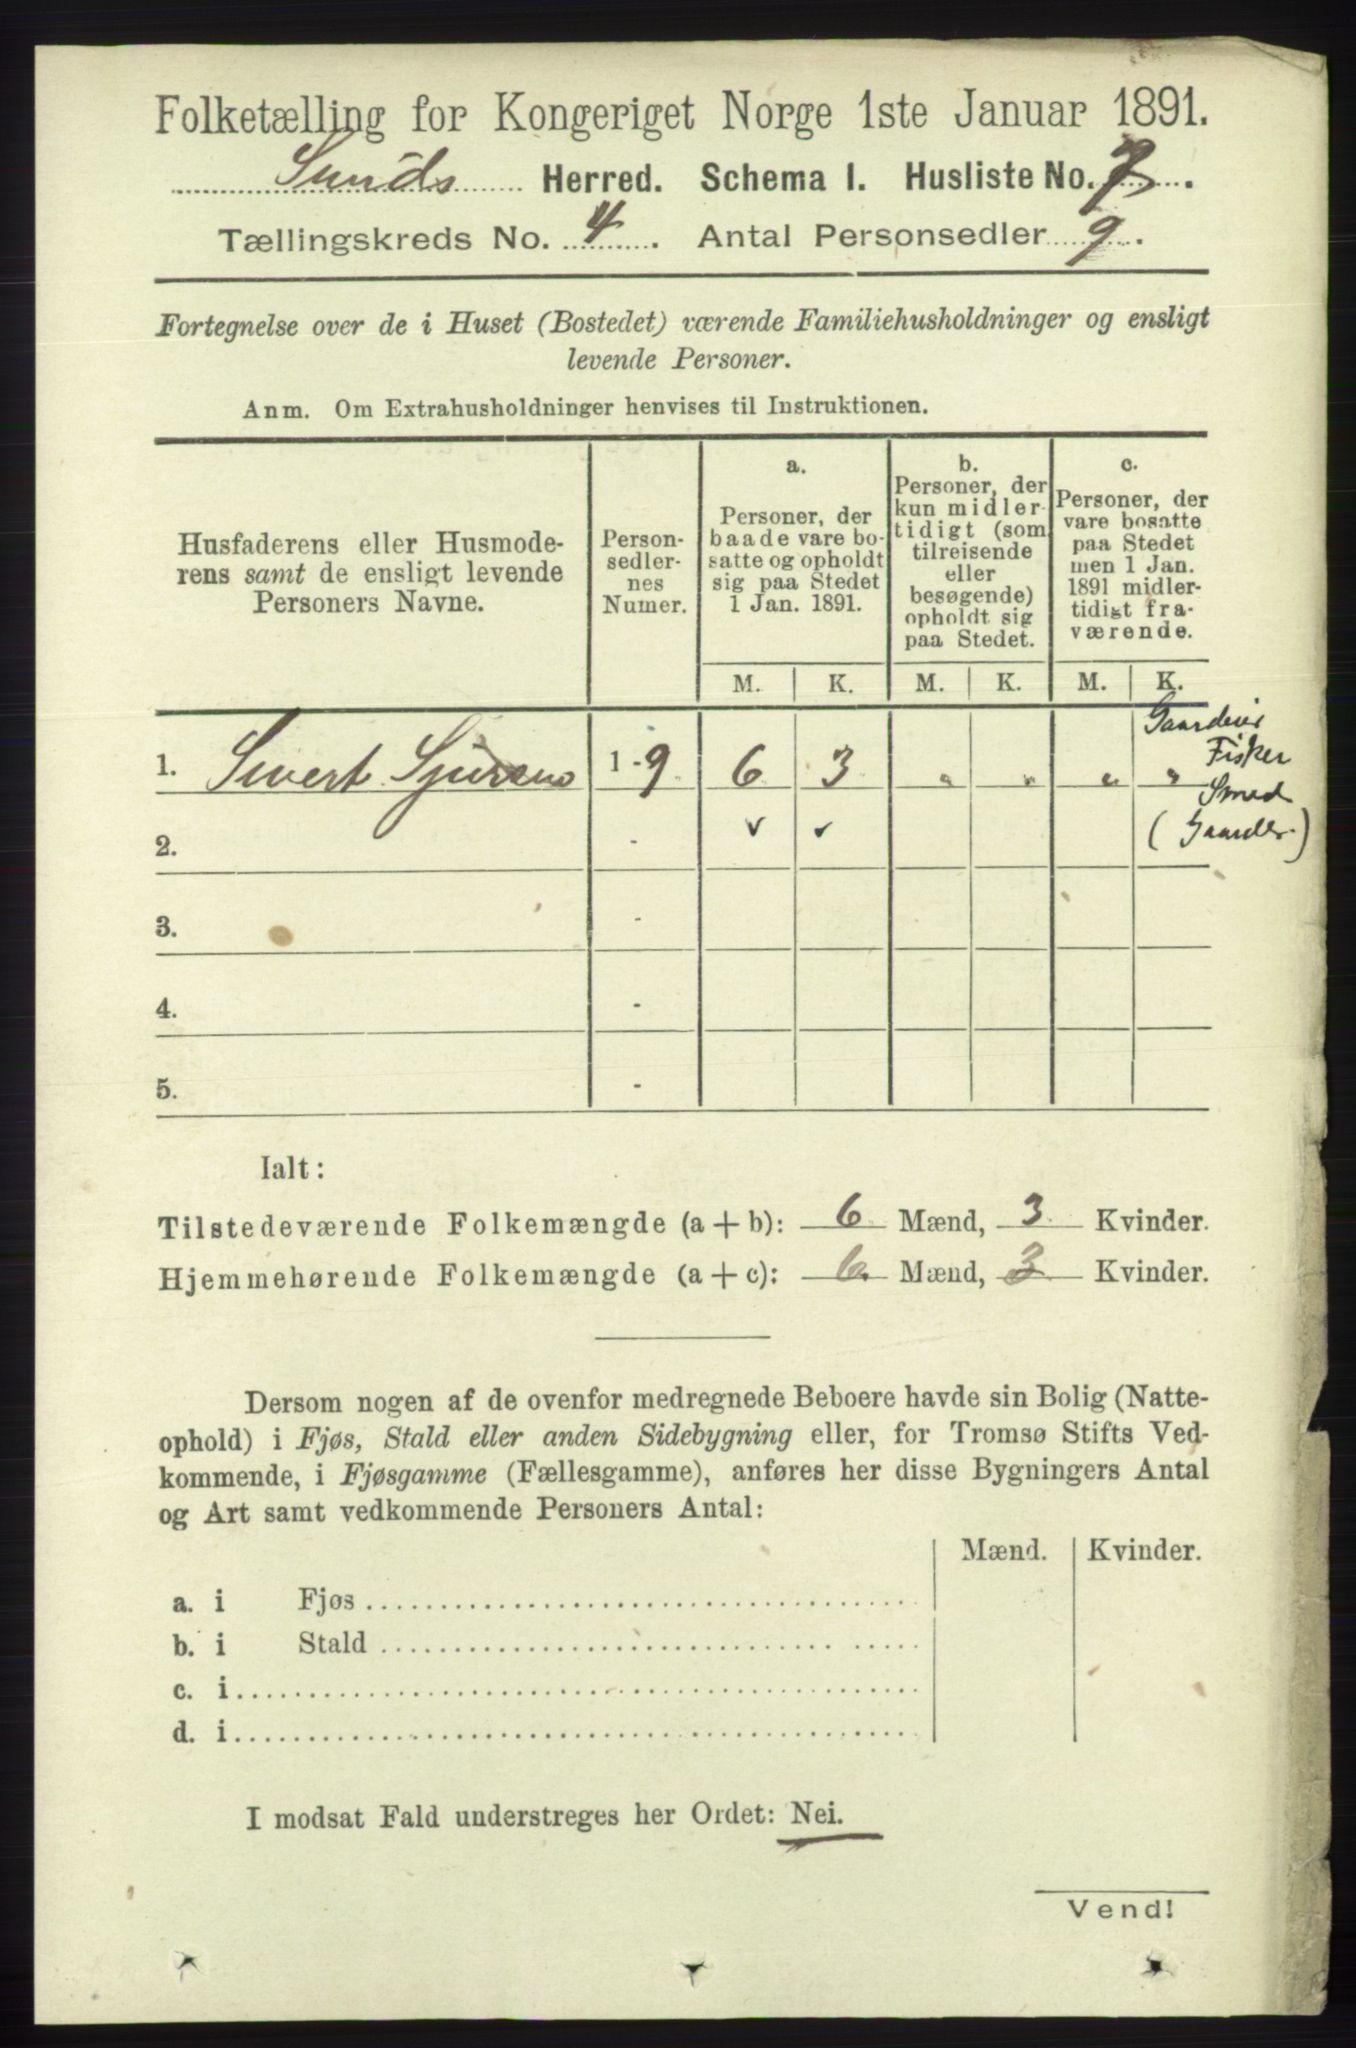 Folketælling for Kongeriget Norge 1ste Januar 1891.
Sunds Herred. Schema I. Husliste No. 7.
Tællingskreds No. 4. Antal Personsedler 9.
Fortegnelse over de i Huset (Bostedet) værende Familiehusholdninger og ensligt
levende Personer.
Anm. Om Extrahusholdninger henvises til Instruktionen.
Husfaderens eller Husmode-
rens samt de ensligt levende
Personers Navne.
Person-
sedler-
nes
Numer.
a.
Personer, der
baade vare bo-
satte og opholdt
sig paa Stedet
1 Jan. 1891.
b.
Personer, der
kun midler-
tidigt (som
tilreisende
eller
besøgende)
opholdt sig
paa Stedet.
c.
Personer, der
vare bosatte
paa Stedet
men 1 Jan.
1891 midler-
tidigt fra-
værende.
M. K. M. K. M. K.
Gaardeier
Fisker
Smed
(Gaarder.)
1. Sivert Sjursen 1-9 6 3 " " " "
2. - ✓ ✓
3. -
4. -
5. -
Ialt:
Tilstedeværende Folkemængde (a + b): 6 Mænd, 3 Kvinder.
Hjemmehørende Folkemængde (a + c): 6 Mænd, 3 Kvinder.
Dersom nogen af de ovenfor medregnede Beboere havde sin Bolig (Natte-
ophold) i Fjøs, Stald eller anden Sidebygning eller, for Tromsø Stifts Ved-
kommende, i Fjøsgamme (Fællesgamme), anføres her disse Bygningers Antal
og Art samt vedkommende Personers Antal:
Mænd. Kvinder.
a. i Fjøs
b. i Stald
c. i
d. i
I modsat Fald understreges her Ordet: Nei.
Vend!